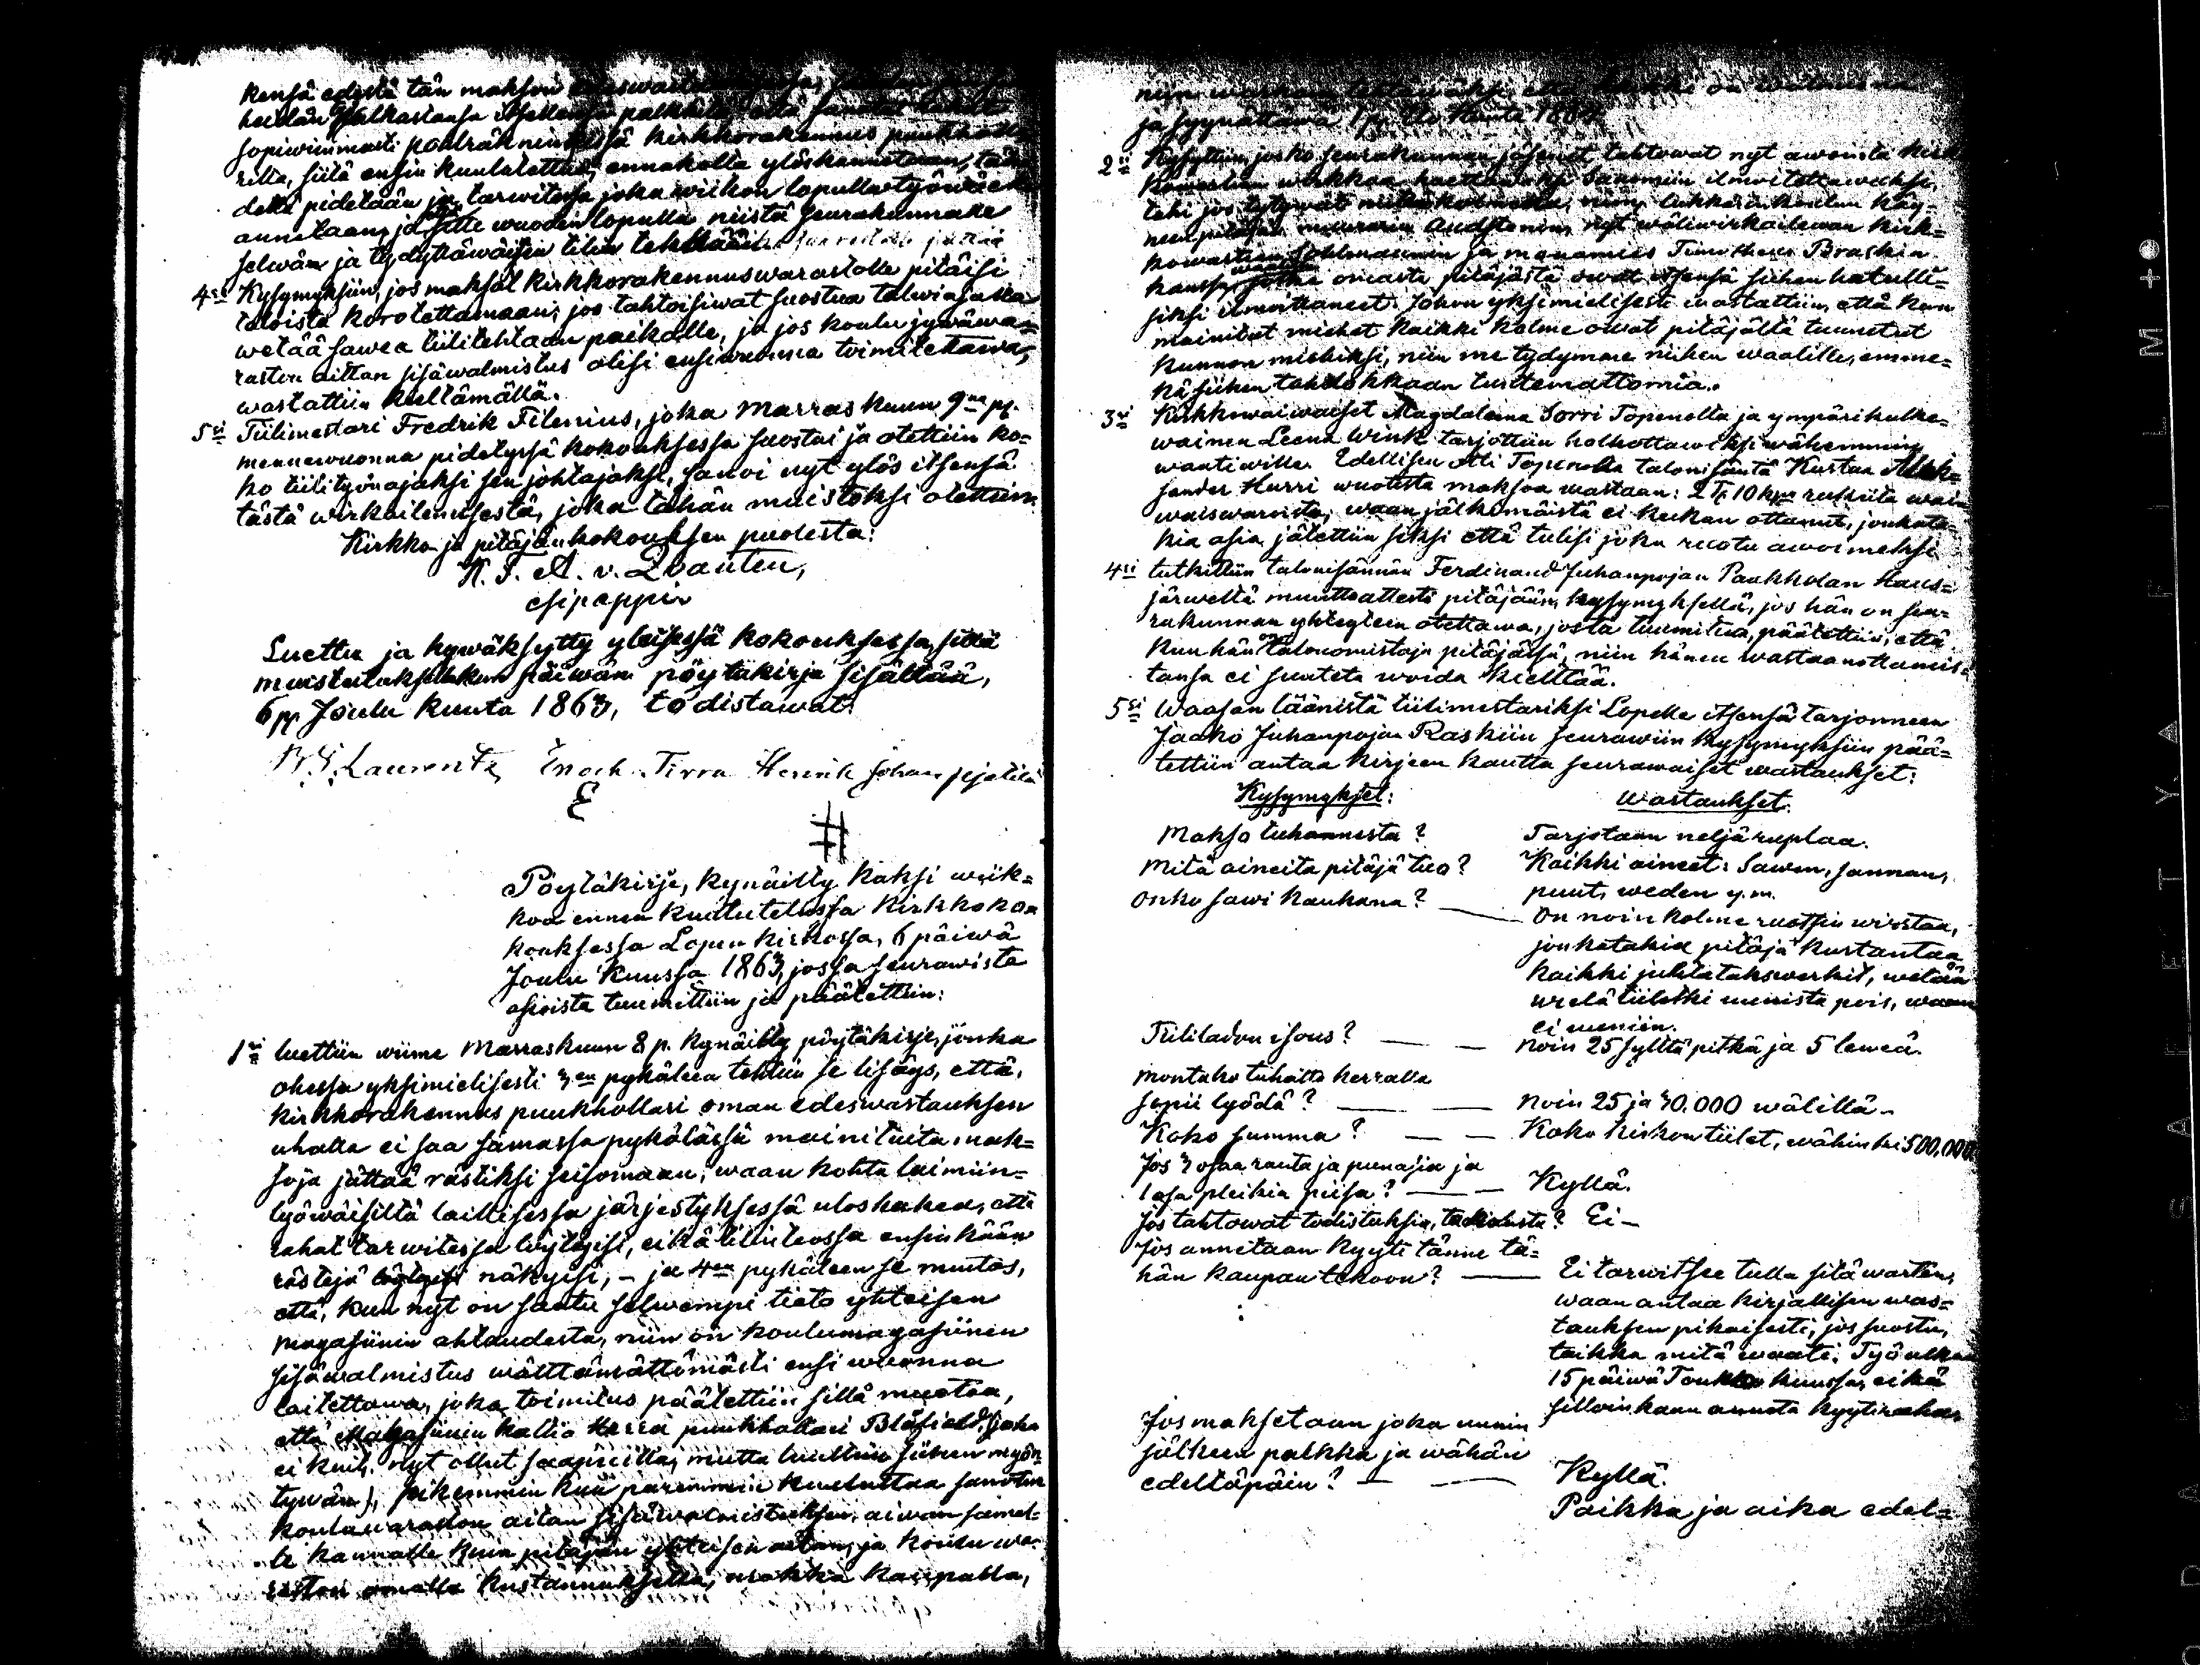 kensä edestä tän makson
heidän Palkastansa itsellensä palkkita
sopiwimmasti poulräkningissä kirkkorakennus puukholla=
rilta, siitä ensin kuulutettua, ennakolta ylöskannetaan, tä
deltä pidetään ja tarwitessa joka wiikon lopulla työwäelle
annetaan, ja sitte wuoden lopulla niistä seurakunnalle
selwän ja tydyttäwäisen tilin tehdään
4si Kysymyksiin, jos maksot kirkkorakennuswarastolle pitäisi
taloista korotettamaan; jos tahtoisiwat suostua talwiajalla
wetää sawea tiilitehtaan paikalle, ja jos koulu jywäwa=
raston aittan sisäwalmistus olisi ensiwuonna toimitettawa,
wastattiin kieltämällä.
5si Tiilimestari Fredrik Filenius, joka Marraskuun 9na pp.
mennewuonna pidetyssä kokouksessa suostui ja otettiin ko=
ko tiilityönajaksi sen johtajaksi, sanoi nyt ylös itsensä
tästä wirkailemisesta, joka tähän muistoksi otettiin
Kirkko ja pitäjänkokouksen puolesta:
K. J. A. v. Qvanten,
esipappi.
Luettu ja hywäksytty yleisessä kokouksessa, sillä
muistutuksella kun päiwän pöytäkirja sisältää,
6 pp. Joulu kuuta 1863, todistawat:
B. G. Laurentz Enoch Tirra Henrik Johan ppjalilä
E
#
Pöytäkirja, kynäilty kaksi wiik=
koa ennen kuulutetussa Kirkkoko=
kouksessa Lopen kirkossa, 6 päiwä
Joulu Kuussa 1863, jossa seurawista
asioista tuumittiin ja päätettiin:
1si luettiin wiime Marraskuun 8 p. kynäilty pöytäkirja, jonka
ohessa yksimielisesti 3en pykäleen tehtiin se lisäys, että,
kirkkorakennus puukhollari oman edeswastauksen
uhalla ei saa samassa pykälässä mainituita mak=
soja jättää rästiksi seisomaan, waan kohta laimiin=
lyöwäisiltä laillisessa järjestyksessä uloshakea, että
rahat tarwitessa löytyisi, eikä tilinteossa ensinkään
rästejä näkyisi, – ja 4en pykäleen se muutos,
että, kun nyt on saatu selwempi tieto yhteisen
magasiinin ahtaudesta, niin on koulumagasiinen
sisäwalmistus wälttämättömästi ensi wuonna
laitettawa, joka toimitus päätettiin sillä muotoa,
että Magasiinin hallio Herra puukhollari Bläfield, (joka
ei kuit. nyt ollut saapuilla, mutta luultiin siihen myön=
tywän), pikemmin kuu paremmin kuuluttaa sanotun
kouluwaraston aitan sisäwalmistuksen aiwan samal=
le kannalle kuin pitäjän yhteisen aitan, ja koulu wa=
raston omalla kustannuksella, urakka kaupalla,
niin
ja syynättäwä 1 p. Elo Kuuta 1864.
2si Kysyttiin, josko seurakunnan jäsenet tahtowat nyt awointa kirk=
kowartian wirkkaa haettawaksi Sanomiin ilmoitettawaksi,
tahi jos tytywät niihin kolmehen, nim. lukkarin koulun käy=
neen pitäjän muurarin Audstenin, nyt wäliwirkailewan kirk=
kowartian Sohlmannin ja monamies Timotheus Braskin
kanssa, waalliin jotka omasta pitäjästä owat itsensä siihen hakulli=
siksi ilmoittaneet. Johon yksimielisesti wastattiin, että kun
mainitut miehet kaikki kolme owat pitäjältä tunnetut
kunnon miehiksi, niin me tydymme niihen waalille, emme=
kä siihen tahdokkaan tuntemattomia.
3si Kirkkowaiwaiset Magdaleena Sorri Topenolta ja ympärikulke=
wainen Leena Wink tarjottiin holhottawaksi wähemmin
waatiwille. Edellisen otti Topenolta talonisäntä Kustan Alek=
sander Hurri wuotista maksoa wastaan: 2 T. 10 kpp rukkiita wai=
waiswaroista, waan jälkimäistä ei kukaan ottanut, jonkatä=
hia asia jätettiin siksi että tulisi joku ruotu awoimeksi
4si tutkittiin talonisännän Ferdinand Juhanpojan Paukkolan Haus=
järweltä muuttoattesti pitäjään, kysymyksellä, jos hän on seu=
rakunnan yhteyteen otettawa, josta tuumittua, päätettiin, että
kun hän on talonomistaja pitäjässä, niin hänen wastaanottamis=
tansa ei suuteta woida kieltää.
5si Waasan läänistä tiilimestariksi Lopelle itsensä tarjonneen
Jaako Juhanpojan Raskiin seurawiin kysymyksiin pää=
tettiin antaa kirjeen kautta seurawaiset wastaukset:
Kysymykset: Wastaukset:
Makso tuhannesta? Tarjotaan neljä ruplaa.
Mitä aineita pitäjä tuo? Kaikki aineet: Sawen, sannan,
puut, weden y.m.
Onko sawi kaukana? — On noin kolme ruotsin wirstaa,
jonkatakia pitäjä kustantaa
kaikki juhtatakswerkit, wetää
wielä tiiletki uunista pois, waan
ei uuniin.
Tiililadon isous? — — Noin 25 syltä pitkä ja 5 lewiä.
Montako tuhatta kerralla
sopii lyödä? — — Noin 25 ja 30.000 wälillä.
Koko summa? — — Koko kirkon tiilet, wähin kei 500,000
Jos 3 osaa rauta ja punasia ja
1 osa pleikia piisa? — — Kyllä.
Jos tahtowat todistuksia, taidosta? Ei —
Jos annetaan kyyti tänne tä=
hän kaupan tekoon? — Ei tarwitsee tulla sitä warten,
waan antaa kirjallisen was=
tauksen pikaisesti, jos suostu,
taikka mitä waati. Työ alkaa
15 päiwä Touko kuussa, eikä
silloinkaan anneta kyytirahaa
Jos maksetaan joka uunin
jälkeen palkka ja wähän
edeltäpäin? — — Kyllä.
Paikka ja aika edel=
FILM
SAFETY